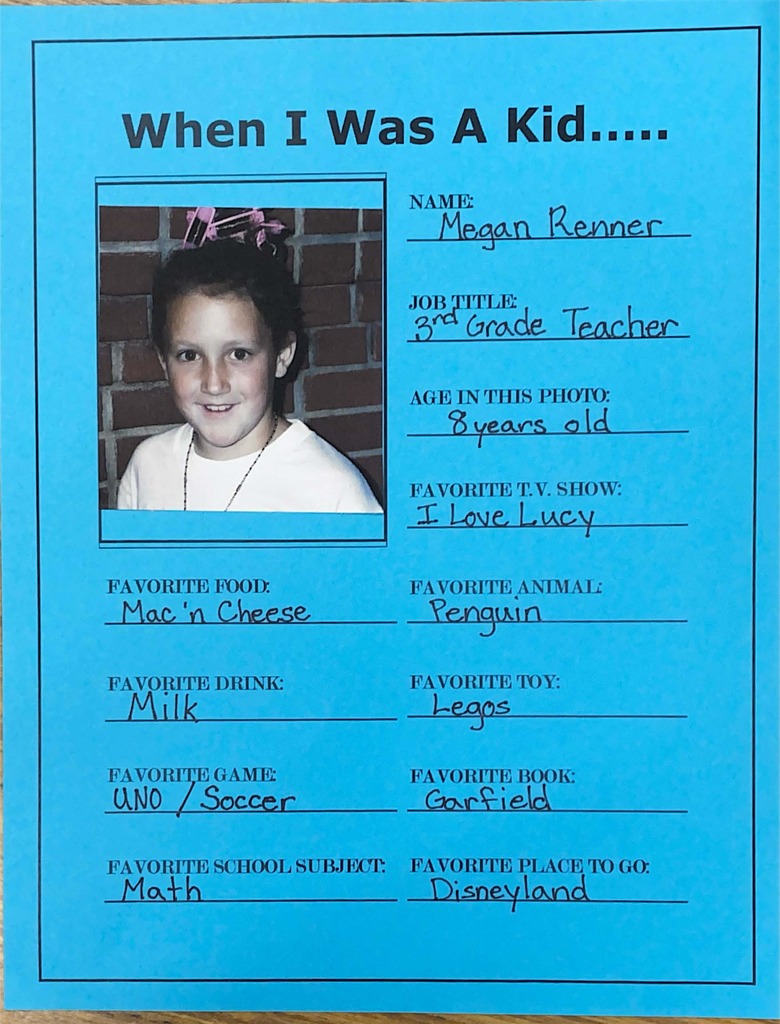 When I Was A Kid.....
NAME:
Megan Renner
JOB TITLE:
3rd Grade Teacher
AGE IN THIS PHOTO:
8 years old
FAVORITE T.V. SHOW:
I Love Lucy
FAVORITE FOOD:
Mac 'n Cheese
FAVORITE ANIMAL:
Penguin
FAVORITE DRINK:
Milk
FAVORITE TOY:
Legos
FAVORITE GAME:
UNO / Soccer
FAVORITE BOOK:
Garfield
FAVORITE SCHOOL SUBJECT:
Math
FAVORITE PLACE TO GO:
Disneyland